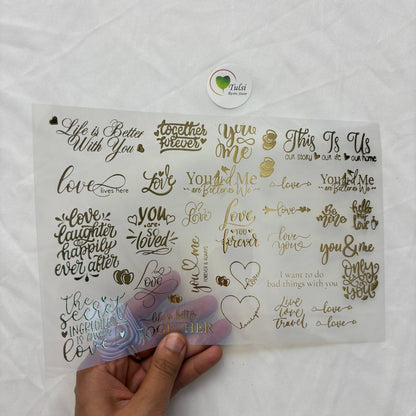 Tulsi
Resin Store
Life is Better
With You
together
forever
you
&
me
This Is Us
our story our life our home
love
lives here
Love
You And Me
are Better as We
love
You And Me
are Better as We
love
laughter
and
happily
ever after
you
are
so
loved
love
you & me
FOREVER & ALWAYS
Love
you
forever
love
love
you
Be
mine
hello
love
you & me
only
you
Love
love
I want to do
bad things with you
The
Secret
INGREDIENT
is always
love
better
TOGETHER
Live
love
travel
love
love